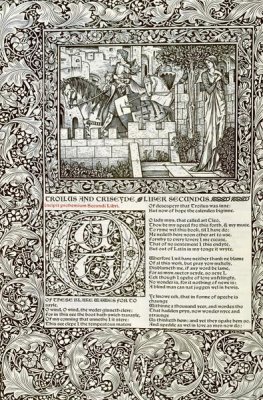 TROILUS AND CRISEYDE. LIBER SECUNDUS.
Incipit prohemium Secundi Libri.
OUT
OF THESE BLAKE WAWES FOR TO
sayle,
O wind, O wind, the weder ginneth clere;
For in this see the boot hath swich travayle,
Of my conning that unnethe I it stere:
This see clepe I the tempestous matere
Of desespeir that Troilus was inne:
But now of hope the calendes biginne.
O lady myn, that called art Cleo,
Thou be my speed fro this forth, & my muse,
To ryme wel this book, til I have do;
Me nedeth here noon other art to use.
Forwhy to every lovere I me excuse,
That of no sentement I this endyte,
But out of Latin in my tonge it wryte.
Wherfore I nil have neither thank ne blame
Of al this werk, but pray you mekely,
Disblameth me, if any word be lame,
For as myn auctor seyde, so seye I.
Eek though I speke of love unfelingly,
No wonder is, for it nothing of newe is;
A blind man can nat juggen wel in hewis.
Ye knowe eek, that in forme of speche is
chaunge
Withinne a thousand yeer, and wordes tho
That hadden prys, now wonder nyce and
straunge
Us thinketh hem; and yet they spake hem so,
And spedde as wel in love as men now do;